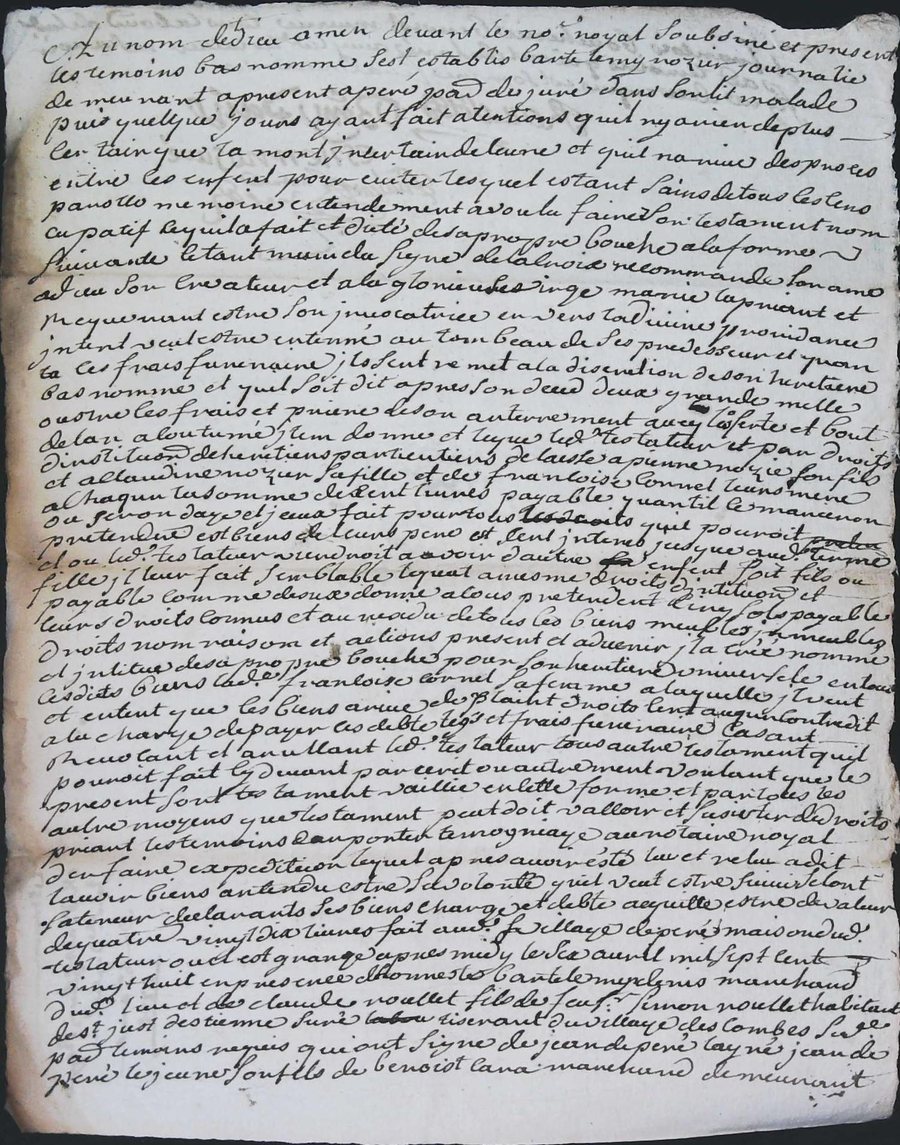 Au nom de dieu amen devant le no.re royal soubsiné et present
les temoins bas nomme sest establis bartelemy nozur journalie
de meunant apresent a peré par.d de juré dans son lit malade
puis quelque jours ayant fait atentions quil ny a rien de plus
certain que la mort jncertain de leure et quil narive des proces
entre les enfent pour eviter lesquel estant sains de tous les sens
parolle memoire entendement a voulu faire son testament nom
cupatif lequil a fait et dicté de sa propre bouche a la forme
suivante setant muni du signe de la croix recommande son ame
a dieu son createur et a la glorieuse vierge marie la priant et
requerant estre son jnvocatrice en vers la divine providance
jntent veut estre enterré au tombeau de ses predesseur et quan
ta ces frais funeraire jl sent remet a la discretion de son heritiere
bas nomme et quel soit dit apres son deces deux grande mille
oustre les frais et priere de son anterrement avec loferte et bout
de lan acoutumé jtem donne et legue led.t testateur et par droits
dinstitution dheretiers particutiers delaisse a pierre nozie son fils
et a claudine nozur sa fille et de francoise cornet leurs mere
a chaqun la somme de cent livres payable quant il se marieron
ou seron dage et jceux fait pour tous les droits que pouroit
pretendre est biens de leurs pere et sent jnteres jusque aud.t terme
et ou led.t testateur viendroit a avoir dautre enfent soit fils ou
fille jl leur fait semblable legat a mesme droits dintituon et
payable comme dessux donne a tous pretendent cinq sols payable
leurs droits connus et au residu de tous les biens meubles jnmeubles
droits nom raisom et actions present et advenir jl a crée nomme
et jntitue de sa propre bouche pour son heritiere universele en tous
lesdits biens lad.e francoise cornet sa feme a laquelle jl veut
et entent que les biens arive de plaint droits sent auqun contredit
a la charge de payer ces debte legs et frais funeraire casant
revocant et anullant led.t testateur tous autre testament quil
pouroit fait cy devant par cerit ou autrement voulant que le
present sont testament vaillie en cette forme et par tous les
autre moyens que testament peut doit valloir et susister du droits
priant les temoins den porter temogneage au notaire royal
den faire expedition lequel apres avoir esté lu et relu a dit
lavoir biens antendu estre sa volonte quil veut estre suivi selont
sa teneur declarants ses biens charge et debte aquitte estre de valeur
de quatre vingt dix livres fait aud.t village de peré maison dud.t
testateur ou cest grange apres midy le six avril mil sept cent
vingt huit en presence dhonneste bartelemy denis marchand
dud.t lieu et de claude roullet fils de feu s.r simon roullet habitant
de s.t just destienne suré tiserant du village des combes sus.de
par.d temoins requis qui ont signe de jean de peré layné jean de
peré le jeune son fils de benoist lara marchand de meunant